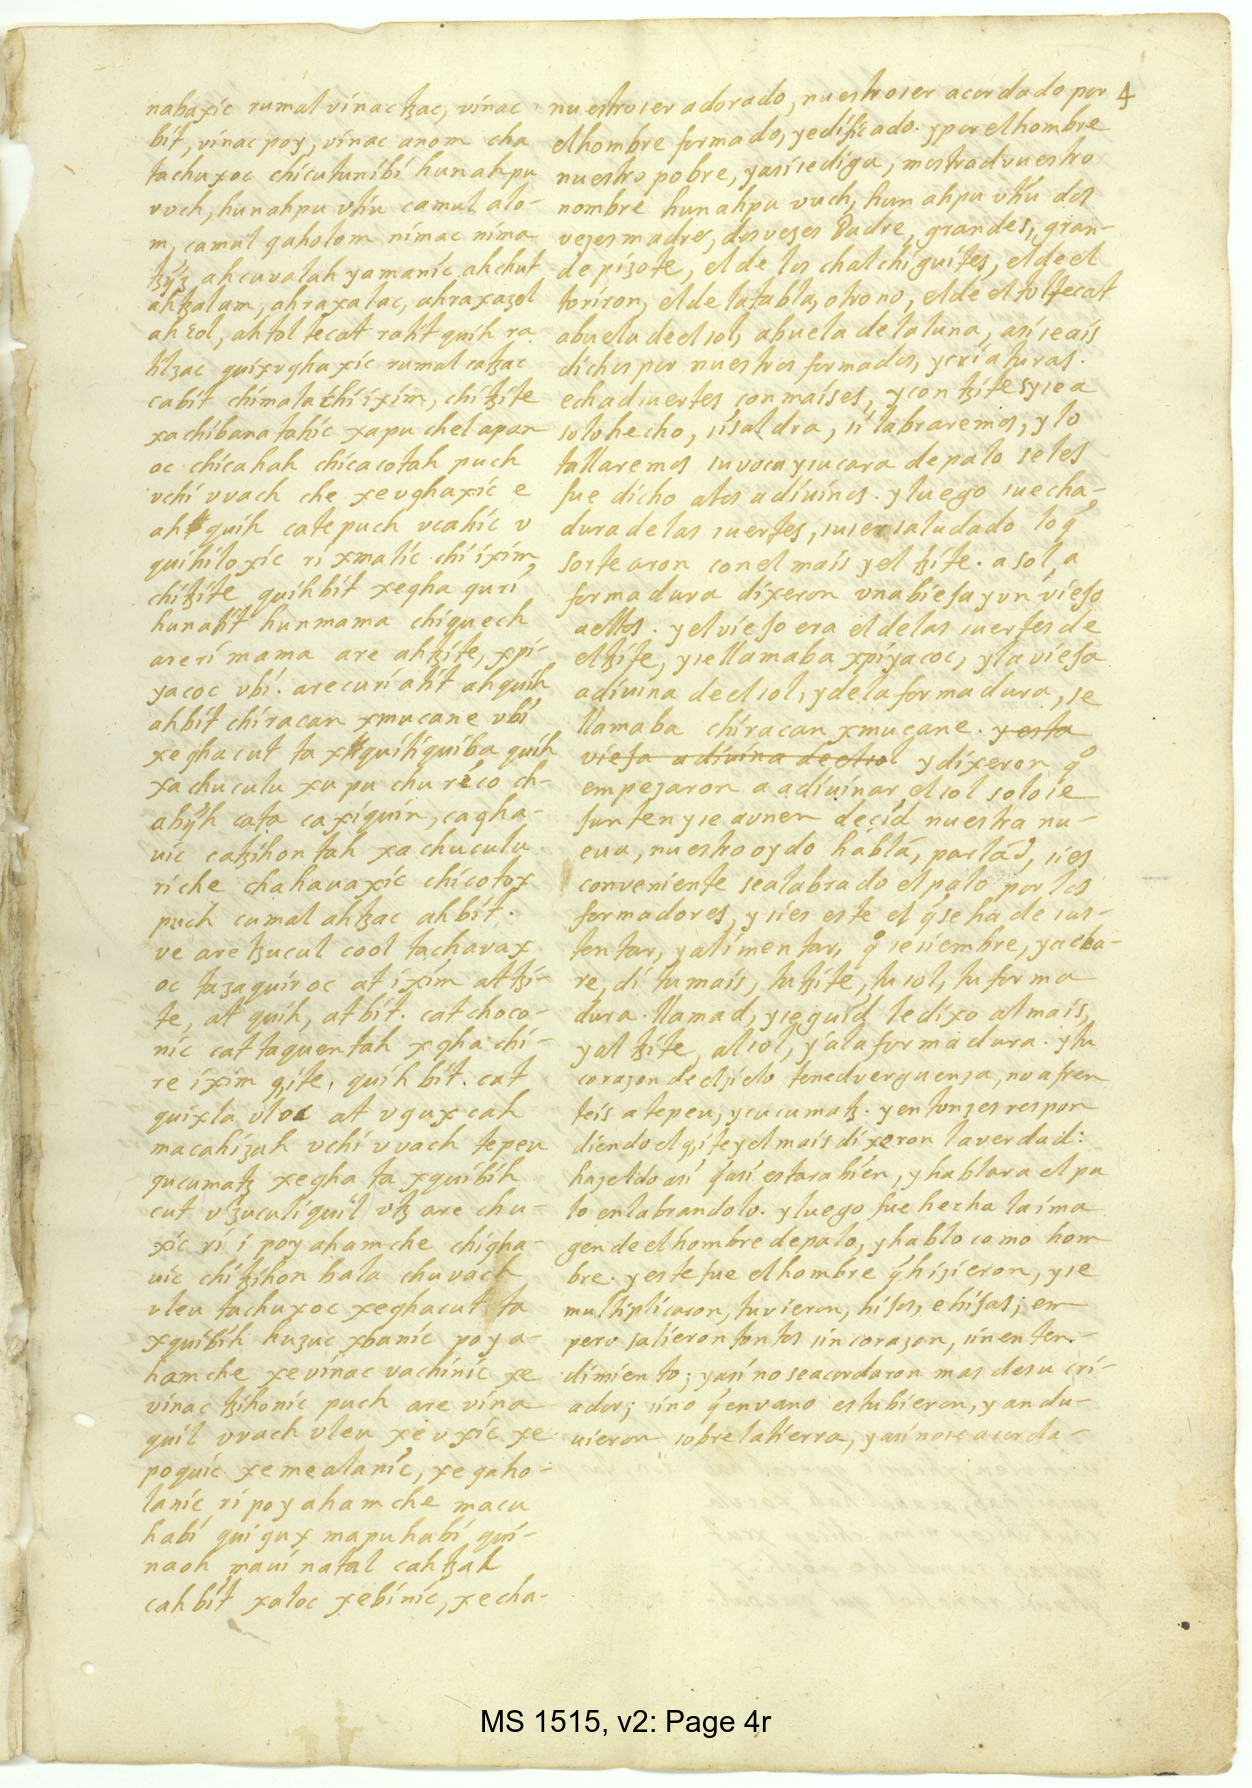 4
nabaxic rumal vinac tzac, vinac
bit, vinac poy, vinac anom cha
tachuxoc chicutunibi hunahpu
vuch, hunahpu vhu camul alo-
m, camul qaholom nimac nima
tzyz ahcuvalah yamanic ahchut
ahtzalam, ahraxalac, ahraxazel
ahcol, ahtoltecat ratit quih ra
titzac quixughaxic rumal catzac
cabit chimalachi ixim, chitzite
xachibanatahic xapu chel apan
oc chicahah chicacotah puch
uchi uvach che xeughaxic e
ah quih catepuch ucahic u
quihiloxic ri xmalic chi ixim,
chitzite quihbit xegha quri
hunatit hunmama chiquech
areri mama are ahtzite, xpi-
yacoc ubi. arecuri atit ahquih
ahbit chiracan xmucane ubi
xeghacut ta xquitiquiba quih
xachuculu xupu chureco ch-
abyh cata caxiquin, cagha-
uic catzihon tah xachuculu
riche chahauaxic chicotox
puch cumal ahtzac ahbit.
ve are tzucul cool tachavax
oc tazaquiroc at ixim at tzi-
te, at quih, at bit. cat choco-
nic cat taquentah xgha chi-
re ixim qite, quih bit. cat
quixla uloc at ugux cah
macahizah uchi uvach tepeu
qucumatz xegha ta xquibih
cut utzuculiquil utz are chu-
xic ri i poy ahamche chigha-
uic chitzihon bala chuvach
uleu tachuxoc xeghacut ta
xquibih huzuc xbanic poy a-
hamche xevinac vachinic xe
vinac tzihonic puch are vina
quil uvach uleu xeuxic xe
poquic xemealanic, xegaho-
lanic ri poy ahamche macu
habi quigux mapuhabi qui-
naoh maui natal cahtzak
cahbit xaloc xebinic, xecha-
nuestro ser adorado, nuestro ser acordado por
elhombre formado, y edificado. y por elhombre
nuestro pobre, y asi se diga, mostrad vuestro
nombre hunahpu vuch, hunahpu vhu dos
vezes madre, dos vezes Padre, grandes, gran-
de pizote, el de los chalchiguites, el de el
toriron, el de latabla, o trono, el de el toltecat
abuela de el sol, abuela de la luna, asi seais
dichos por nuestros formados, y criaturas.
echad suertes con maises, y con tzites y sea
solo hecho, si saldra, si labraremos, y lo
tallaremos su voca y su cara de palo se les
fue dicho a los adivinos. y luego su echa-
dura de las suertes, su ser saludado lo q̃
sortearon con el mais y el tzite. a sol, a
formadura dixeron una bieja y un viejo
a ellos. y el viejo era el de las suertes de
el tzite, y se llamaba xpiyacoc, y la vieja
adivina de el sol, y de la formadura, se
llamaba chiracan xmucane. y esta
vieja adivina de el sol y dixeron q̃
empezaron a adivinar, el sol solo se
junten y se aunen decid nuestra nu-
eva, nuestro oydo hablá, parlád, si es
conveniente sea labrado el palo por los
formadores, y si es este el q̃ se ha de sus-
tentar, y alimentar, q̃ se siembre, y acla-
re, di tu mais, tu tzite, tu sol, tu forma
dura. llamad, y seguid le dixo al mais,
y al tzite, al sol, y a la formadura. y tu
corazon de el zielo tened verguenza, no afren
teis a tepeu, y cucumatz. y entonzes respon
diendo el qite y el mais dixeron la verdad:
hazeldo asi q̃ asi estara bien, y hablara el pa
lo en labrandolo. y luego fue hecha la ima
gen de el hombre de palo, y hablo como hom
bre. y este fue el hombre q̃ hizieron, y se
multiplicaron, tuvieron, hijos, e hijas; em
pero salieron tontos sin corazon, sin enten-
dimiento; y asi no se acordaron mas de su cri-
ador; sino q̃ en vano estubieron, y andu-
uieron sobre la tierra, y asi no se acorda-
MS 1515, v2: Page 4r